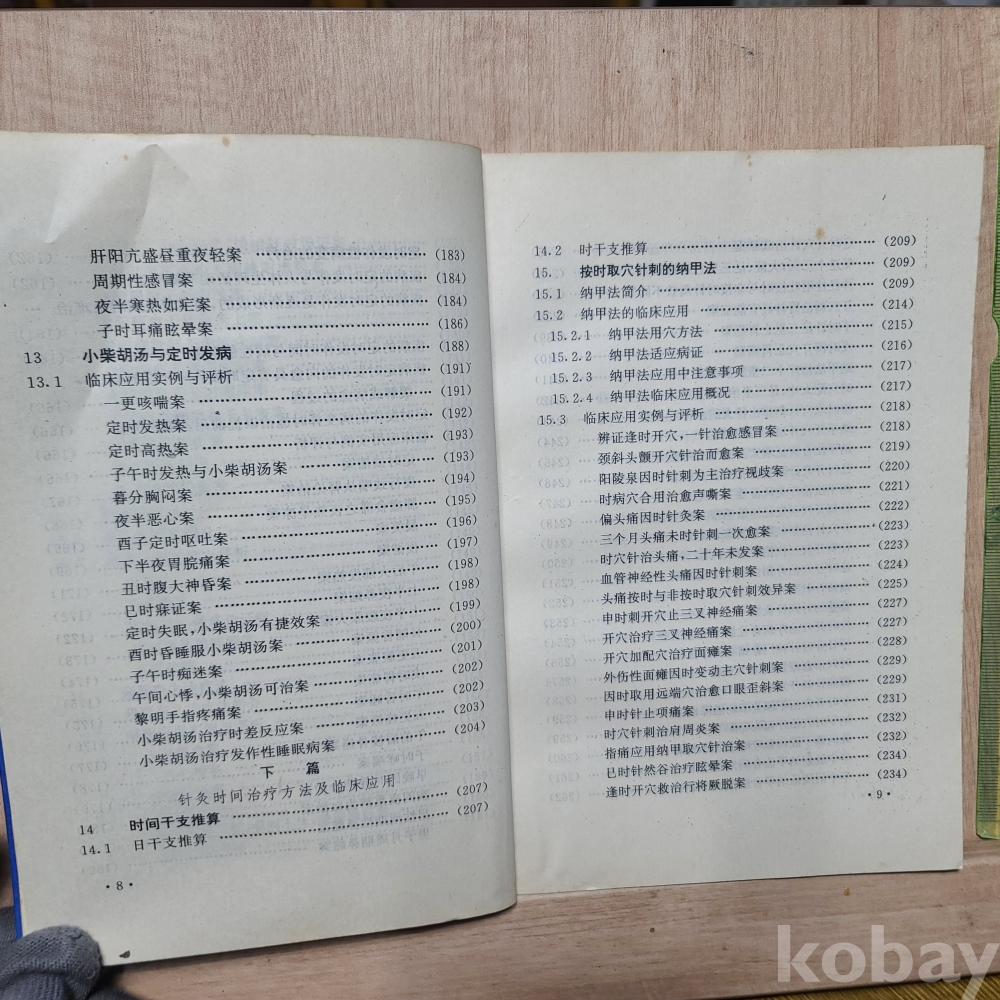 肝阳亢盛昼重夜轻案 ……… (183)
周期性感冒案 ……… (184)
夜半寒热如疟案 ……… (184)
子时耳痛眩晕案 ……… (186)
13 小柴胡汤与定时发病 ……… (188)
13.1 临床应用实例与评析 ……… (191)
一更咳喘案 ……… (191)
定时发热案 ……… (192)
定时高热案 ……… (193)
子午时发热与小柴胡汤案 ……… (193)
暮分胸闷案 ……… (194)
夜半恶心案 ……… (195)
酉子定时呕吐案 ……… (196)
下半夜胃脘痛案 ……… (197)
丑时腹大神昏案 ……… (198)
巳时寐证案 ……… (198)
定时失眠,小柴胡汤有捷效案 ……… (199)
酉时昏睡服小柴胡汤案 ……… (200)
子午时痴迷案 ……… (201)
午间心悸,小柴胡汤可治案 ……… (202)
黎明手指疼痛案 ……… (202)
小柴胡汤治疗时差反应案 ……… (203)
小柴胡汤治疗发作性睡眠病案 ……… (204)
下 篇
针灸时间治疗方法及临床应用
14 时间干支推算 ……… (207)
14.1 日干支推算 ……… (207)
·8·
14.2 时干支推算 ……… (209)
15. 按时取穴针刺的纳甲法 ……… (209)
15.1 纳甲法简介 ……… (209)
15.2 纳甲法的临床应用 ……… (214)
15.2.1 纳甲法用穴方法 ……… (215)
15.2.2 纳甲法适应病证 ……… (216)
15.2.3 纳甲法应用中注意事项 ……… (217)
15.2.4 纳甲法临床应用概况 ……… (217)
15.3 临床应用实例与评析 ……… (218)
辨证逢时开穴,一针治愈感冒案 ……… (218)
颈斜头颤开穴针治而愈案 ……… (219)
阳陵泉因时针刺为主治疗视歧案 ……… (220)
时病穴合用治愈声嘶案 ……… (221)
偏头痛因时针灸案 ……… (222)
三个月头痛未时针刺一次愈案 ……… (223)
时穴针治头痛,二十年未发案 ……… (223)
血管神经性头痛因时针刺案 ……… (224)
头痛按时与非按时取穴针刺效异案 ……… (225)
申时刺开穴止三叉神经痛案 ……… (227)
开穴治疗三叉神经痛案 ……… (227)
开穴加配穴治疗面瘫案 ……… (228)
外伤性面瘫因时变动主穴针刺案 ……… (229)
因时取用远端穴治愈口眼歪斜案 ……… (229)
申时针止项痛案 ……… (231)
时穴针刺治肩周炎案 ……… (232)
指痛应用纳甲取穴针治案 ……… (232)
巳时针然谷治疗眩晕案 ……… (234)
逢时开穴救治行将厥脱案 ……… (234)
·9·
kobay